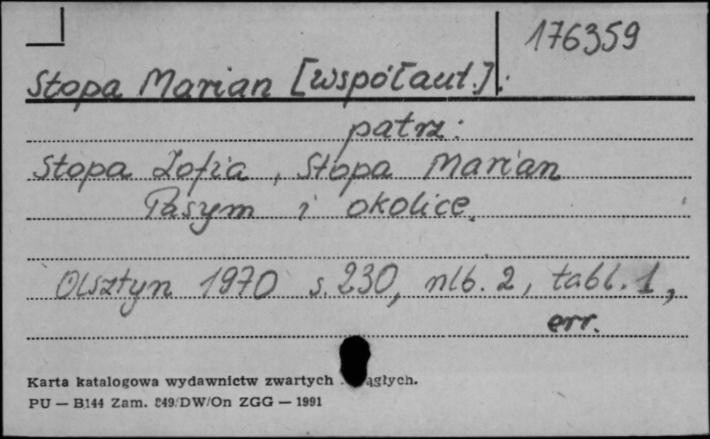 176359
Stopa Marian [współaut.].
patrz:
Stopa Zofia, Stopa Marian
Pasym i okolice.
Olsztyn 1970 s. 230, nlb. 2, tabl. 1,
err.
Karta katalogowa wydawnictw zwartych
PU — B144 Zam. 849/DW/On ZGG — 1991